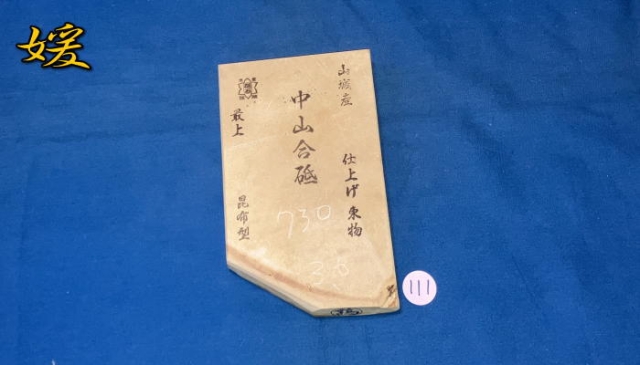 媛
山城産
中山合砥
最上
仕上げ東物
昆布型
730
111